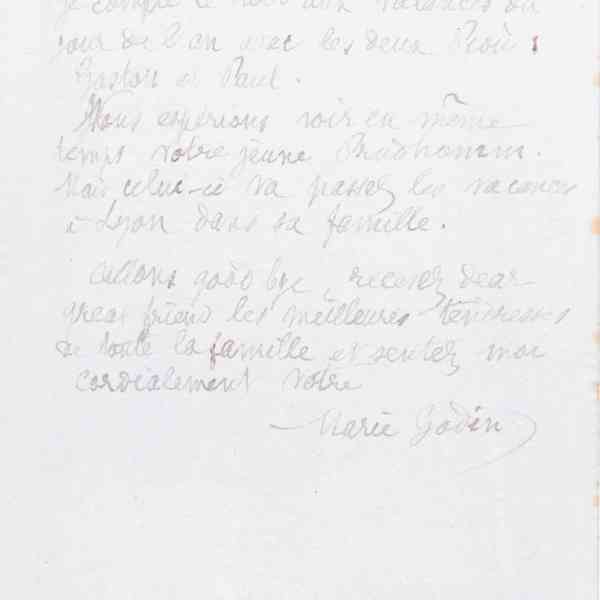 je compte le voir aux vacances du
jour de l'an avec les deux
Gaston et Paul.
Nous espérions voir en même
temps votre jeune Prudhomm.
Mais celui-ci va passer les vacances
à Lyon dans sa famille.
allons good bye, recevez dear
great friend les meilleures tendresses
de toute la famille et sentez moi
cordialement votre
Marie Godin